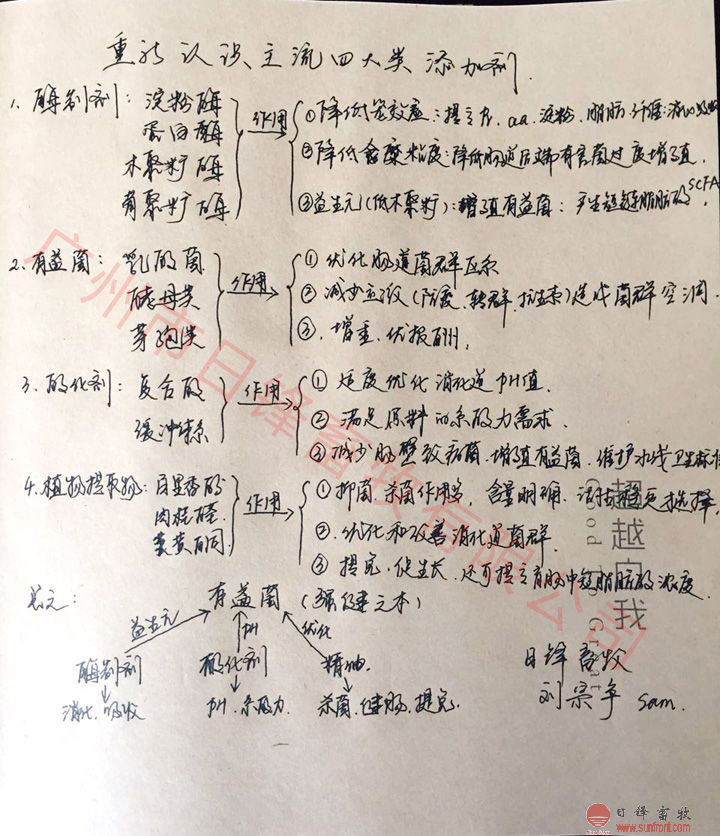 重新认识主流四大类添加剂.
1. 酶制剂: 淀粉酶
蛋白酶
木聚糖酶
葡聚糖酶
作用
①降低笼效应: 提高 aa. 淀粉. 脂肪. 纤维: 消化吸收
②降低食糜粘度: 降低肠道后端有害菌过度增殖.
③益生元(低木聚糖): 增殖有益菌: 产生短链脂肪酸 SCFA
2. 有益菌: 乳酸菌
酵母类
芽孢类
作用
①优化肠道菌群区系
②减少应激(防疫、转群、抗生素)造成菌群空洞.
③. 增重、优报酬.
3. 酸化剂: 复合酸
缓冲体系
作用
①适度优化消化道PH值.
②满足原料的系酸力需求.
③减少肠壁致病菌. 增殖有益菌. 维护水线卫生标准
4. 植物提取物: 百里香酚
肉桂醛.
姜黄酮
作用
①抑菌. 杀菌作用, 含量明确. 选择,
②. 优化和改善消化道菌群.
③提免. 促生长. 还可提高肠中短脂肪酸浓度.
总之:
有益菌 (强健之本)
益生元 PH 优化
酶制剂 酸化剂 精油.
消化. 吸收 PH. 系酸力 杀菌. 健肠. 提免.
日锋畜牧
刘宗争 Sam.
广州市日锋畜牧有限公司
超越自我
日锋畜牧
www.sunfront.com